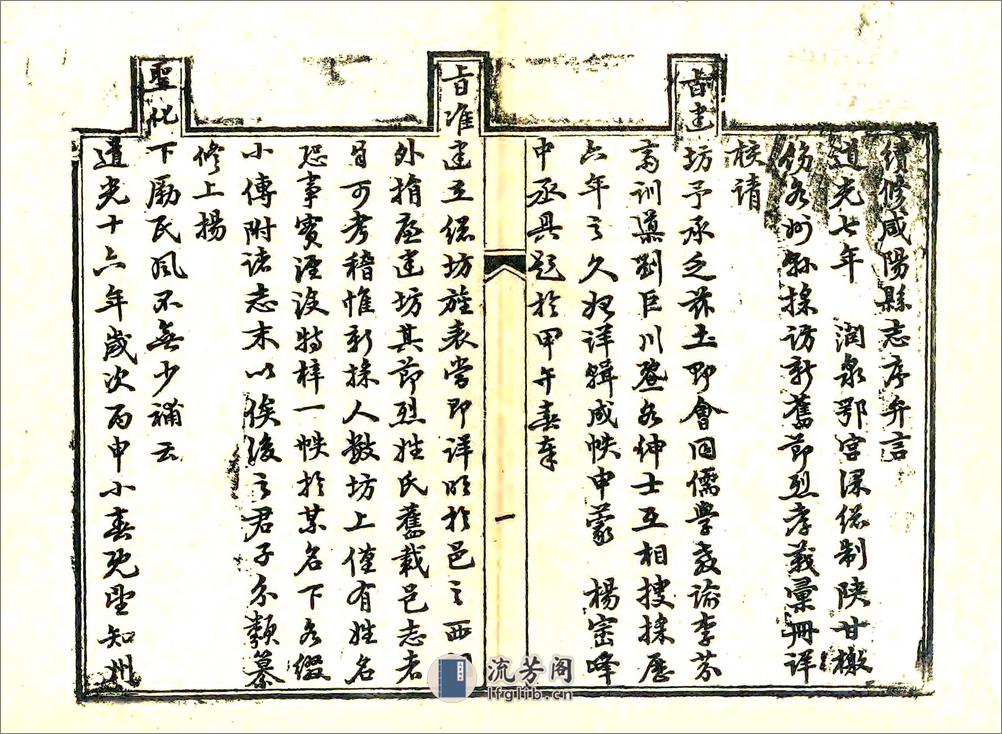 續修咸陽縣志序弁言
道光七年 潤泉鄂宮保總制陝甘檄
飭各州縣採訪新舊節烈孝義彙冊詳
核請
旨建坊予承乏茲土即會同儒學教諭李芬
高訓導劉巨川暨各紳士互相搜採歷
六年之久始詳輯成帙申蒙 楊宻峰
中丞具題於甲午春奉
一
旨准建立總坊旌表當即詳明於邑之西門
外捐廉建坊其節烈姓氏舊載邑志者
自可考稽惟新採人數坊上僅有姓名
恐事實湮没特梓一帙於某名下各綴
小傳附諸志末以俟後之君子分類纂
修上揚
聖化下勵民風不無少補云
道光十六年歲次丙申小春既望知州
流芳阁
lfglib.cn